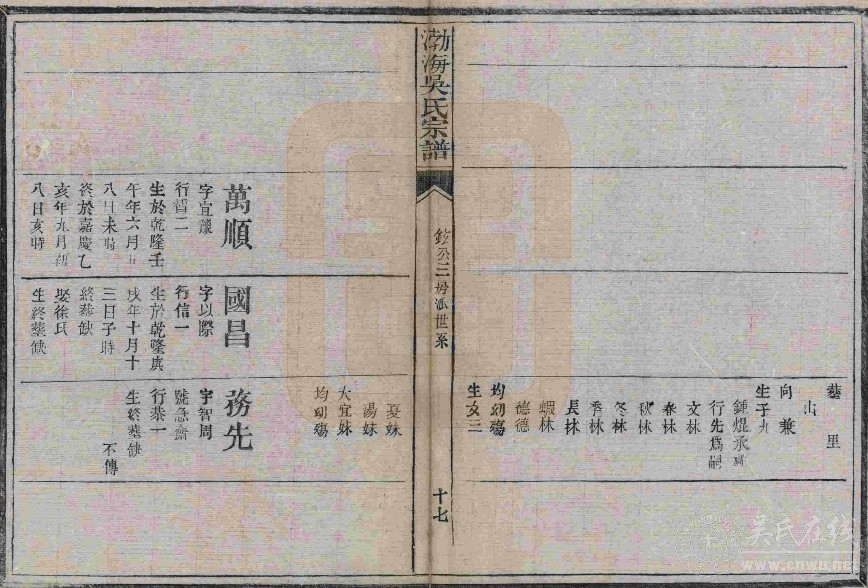 葬 里
山
向兼
生子九
鍾焜承
行先爲嗣
文林
春林
秋林
冬林
季林
長林
蝦林
德德
均幼殤
生女三
渤海吳氏宗譜
世系
十七
夏妹
湯妹
大宜妹
均幼殤
萬順
字宜
行智二
生於乾隆壬
午年六月
八日未時
終於嘉慶乙
亥年九月初
八日亥時
國昌
字以際
行信一
生於乾隆庚
戌年十月十
三日子時
終葬缺
娶徐氏
生終葬缺
務先
字智周
號急齋
行恭一
生終葬缺
不傳
吳氏在线
www.cnwu.net